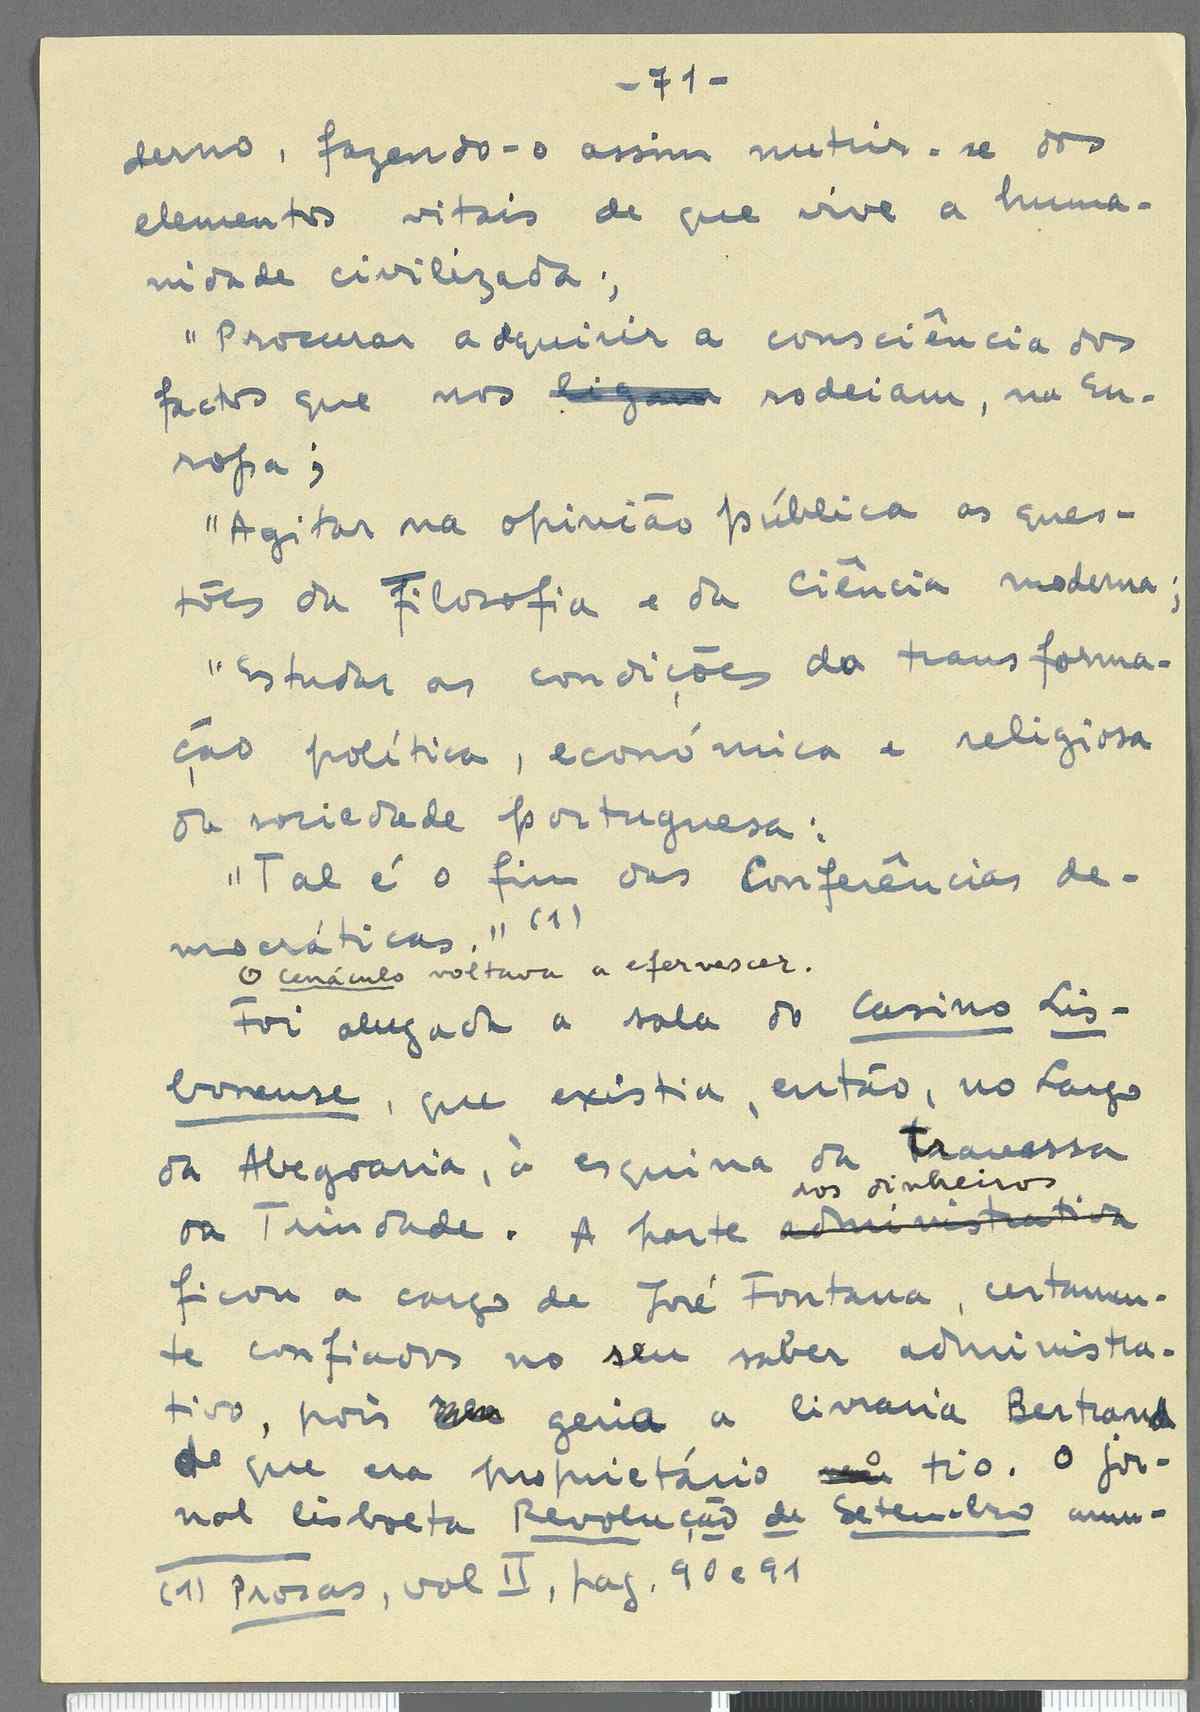 -71-
derno, fazendo-o assim nutrir-se dos
elementos vitais de que vive a huma-
nidade civilizada;
"Procurar adquirir a consciência dos
factos que nos ligam rodeiam, na Eu-
ropa;
"Agitar na opinião pública as ques-
tões da Filosofia e da Ciência moderna;
"Estudar as condições da transforma-
ção política, económica e religiosa
da sociedade portuguesa:
"Tal é o fim das Conferências de-
mocráticas." (1)
O cenáculo voltava a efervescer.
Foi alugada a sala do Casino Lis-
bonense, que existia, então, no Largo
da Abegoaria, à esquina da Travessa
dos dinheiros
da Trindade. A parte administrativa
ficou a cargo de José Fontana, certamen-
te confiados no seu saber administra-
tivo, pois geria a livraria Bertrand
de que era proprietário o tio. O jor-
nal lisboeta Revolução de Setembro anun-
(1) Prosas, vol II, pag. 90 e 91